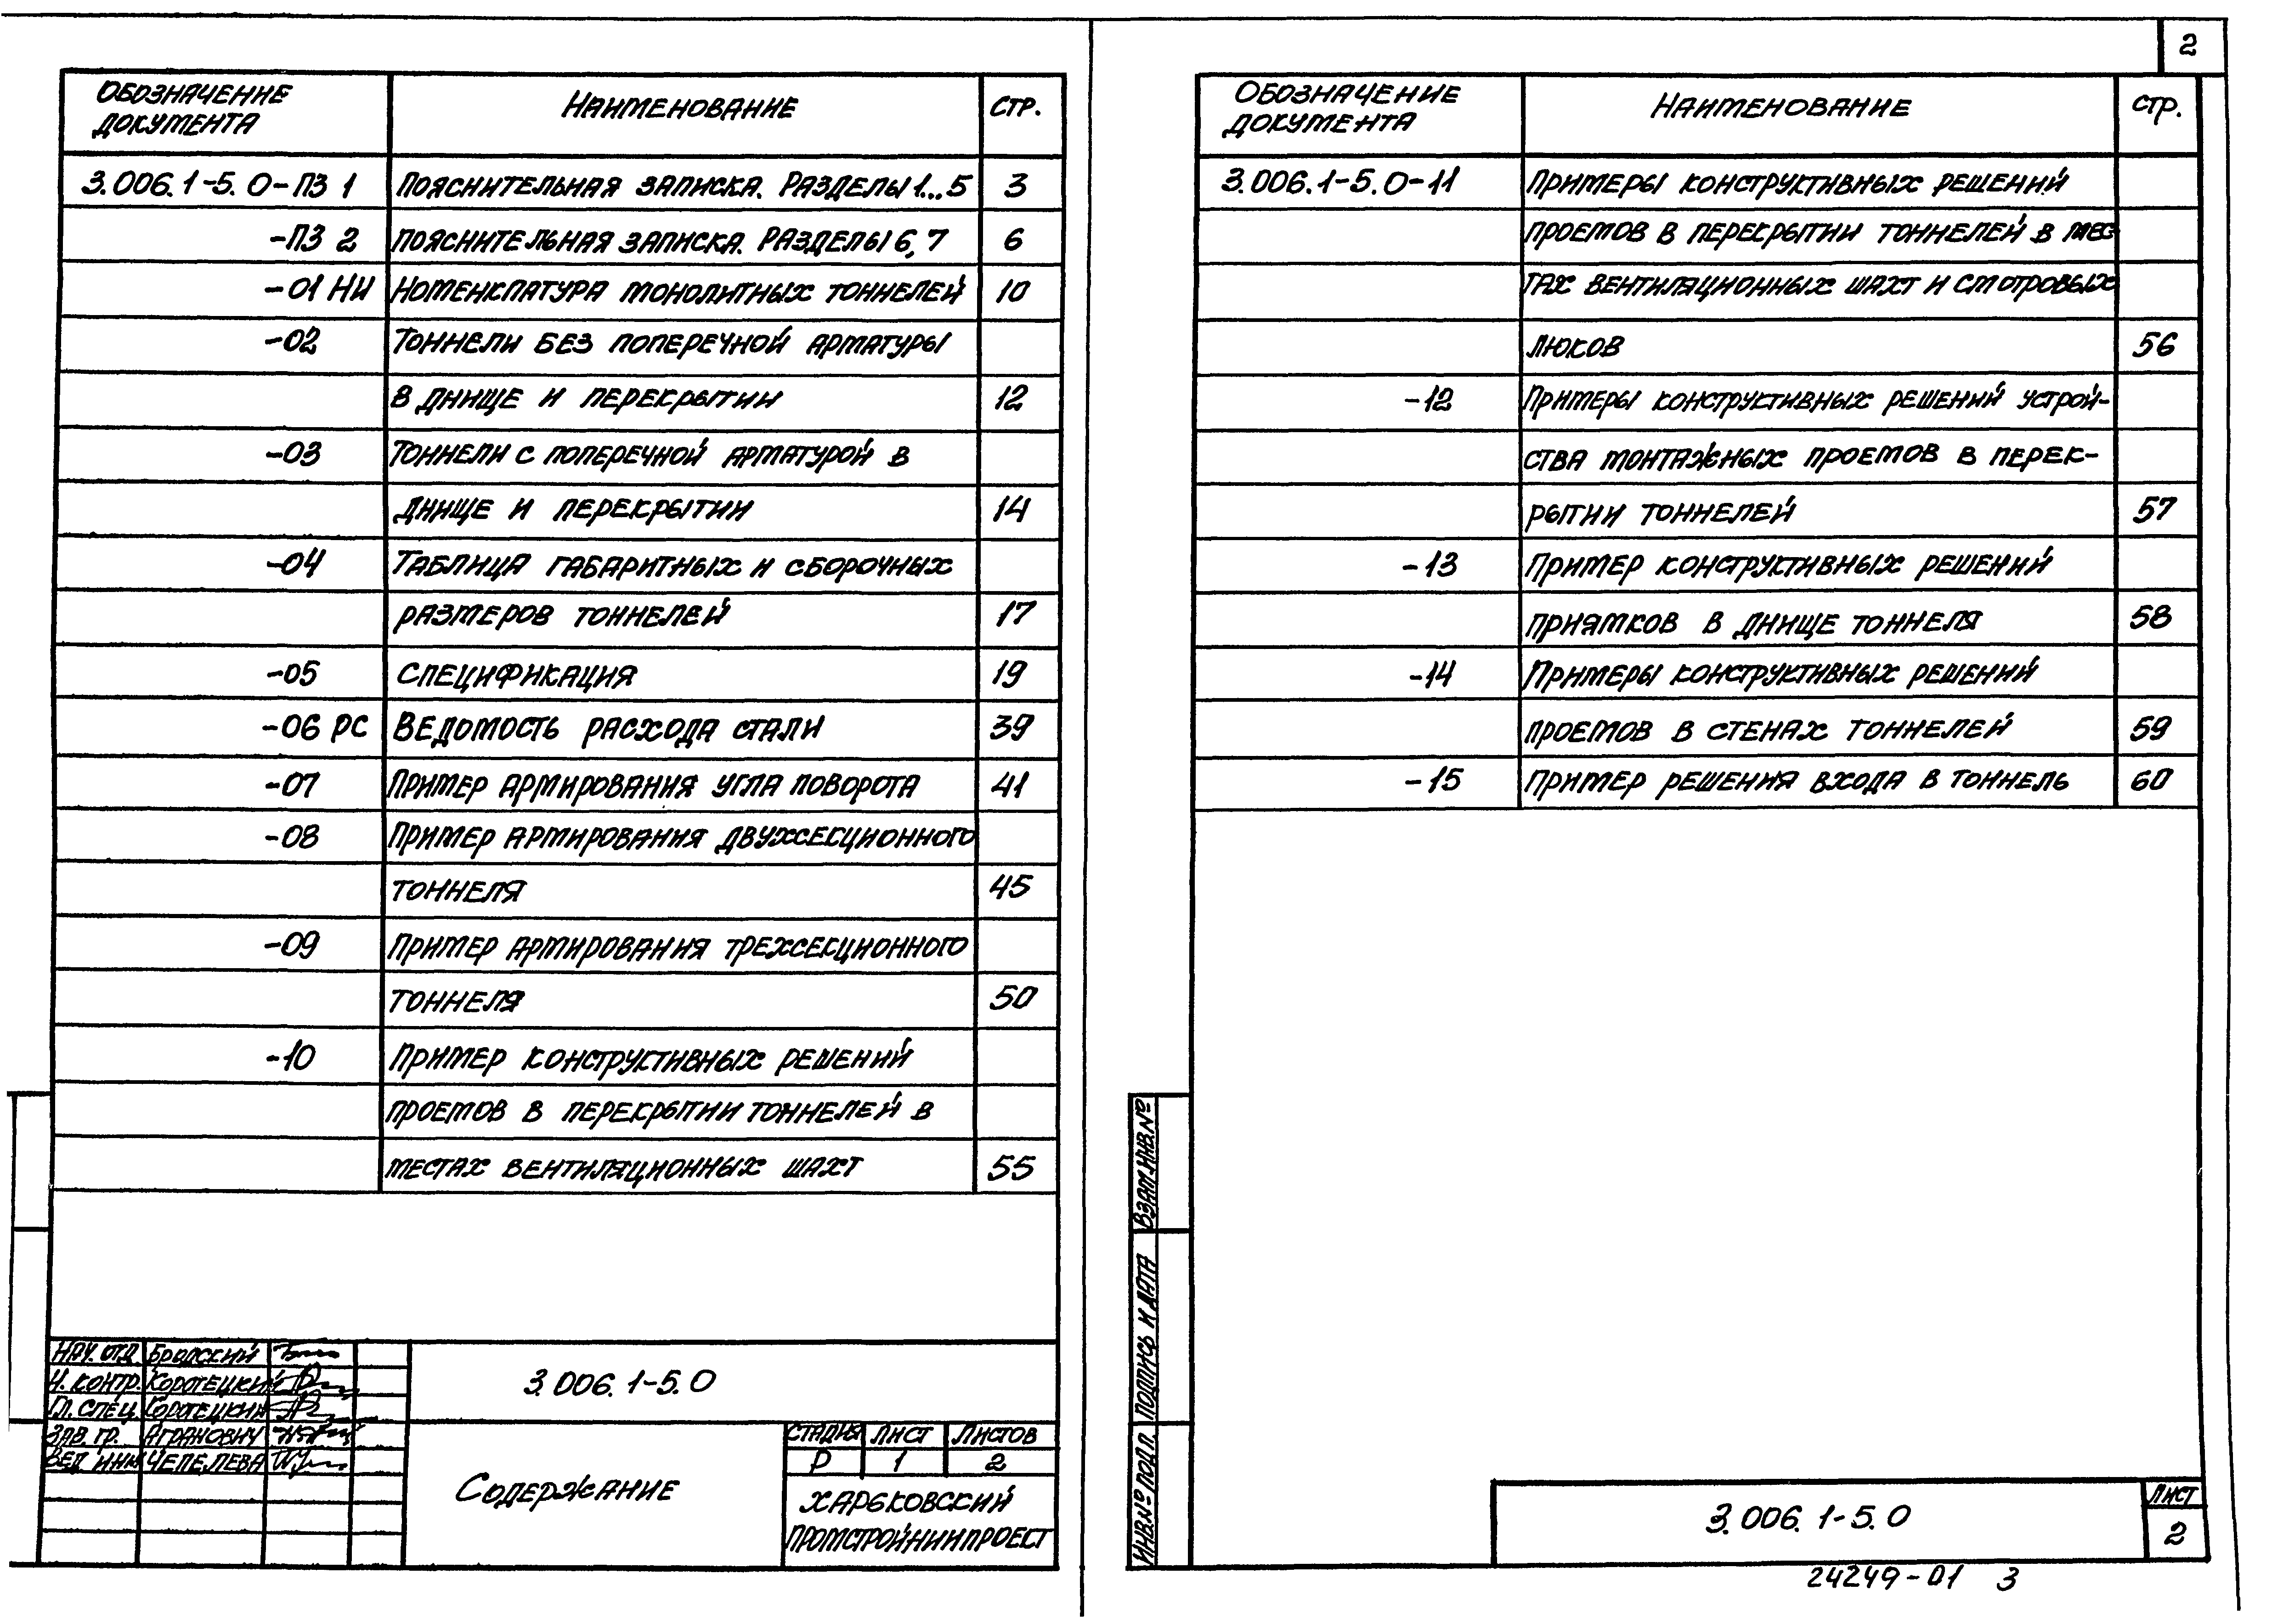 2
Обозначение документа Наименование Стр.
3.006.1-5.0-ПЗ 1 Пояснительная записка. Разделы 1...5 3
-ПЗ 2 Пояснительная записка. Разделы 6,7 6
-01 НИ Номенклатура монолитных тоннелей 10
-02 Тоннели без поперечной арматуры
в днище и перекрытии 12
-03 Тоннели с поперечной арматурой в
днище и перекрытии 14
-04 Таблица габаритных и сборочных
размеров тоннелей 17
-05 Спецификация 19
-06 РС Ведомость расхода стали 39
-07 Пример армирования угла поворота 41
-08 Пример армирования двухсекционного
тоннеля 45
-09 Пример армирования трехсекционного
тоннеля 50
-10 Пример конструктивных решений
проемов в перекрытии тоннелей в
местах вентиляционных шахт 55
Нач. отд. Бродский
Н. контр. Коротецкий
Гл. спец. Коротецкий
Зав. гр. Агранович
Вед. инж. Чепелева
3.006.1-5.0
Содержание
Стадия Лист Листов
Р 1 2
Харьковский
Промстройниипроект
Обозначение документа Наименование Стр.
3.006.1-5.0-11 Примеры конструктивных решений
проемов в перекрытии тоннелей в мес-
тах вентиляционных шахт и смотровых
люков 56
-12 Примеры конструктивных решений устрой-
ства монтажных проемов в перек-
рытии тоннелей 57
-13 Пример конструктивных решений
приямков в днище тоннеля 58
-14 Примеры конструктивных решений
проемов в стенах тоннелей 59
-15 Пример решения входа в тоннель 60
Взам. инв. №
Подпись и дата
Инв. № подл.
3.006.1-5.0
Лист
2
24249-01 3